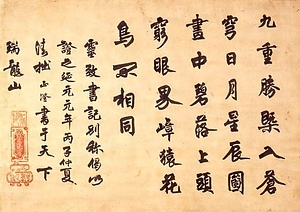 九重勝槩入蒼
穹日月星辰圖
畫中碧落上頭
窮眼界嶂猿花
鳥相同
靈致書記別偈以
證之延元元年丙子仲夏
清拙正澄書于天下
瑞龍山